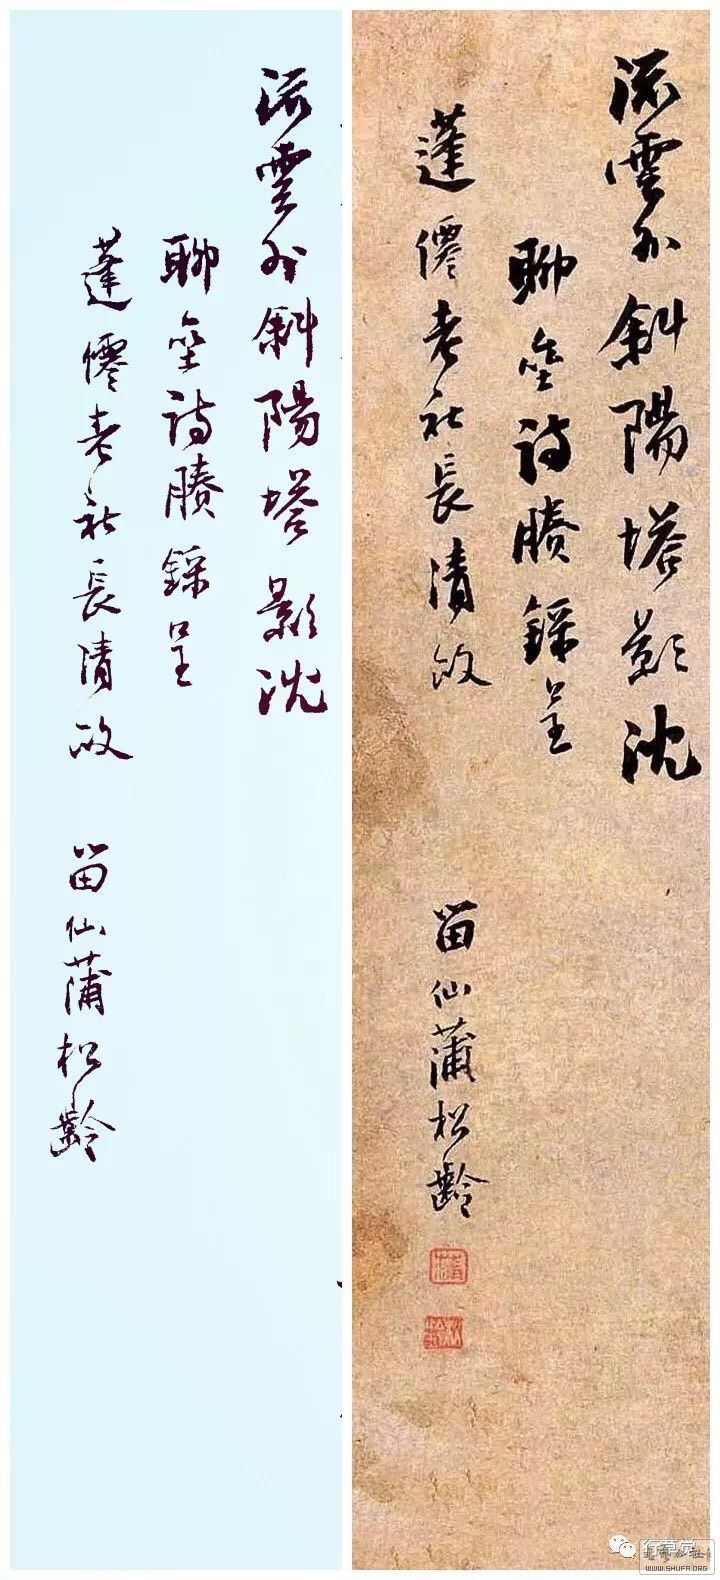 流雲外斜陽塔影沈
聊詩賸錄呈
蓬僊老社長清政
留仙蒲松齡
流雲外斜陽塔影沈
聊詩賸錄呈
蓬僊老社長清政
留仙蒲松齡
行草觉
WWW.SHUFA.ORG